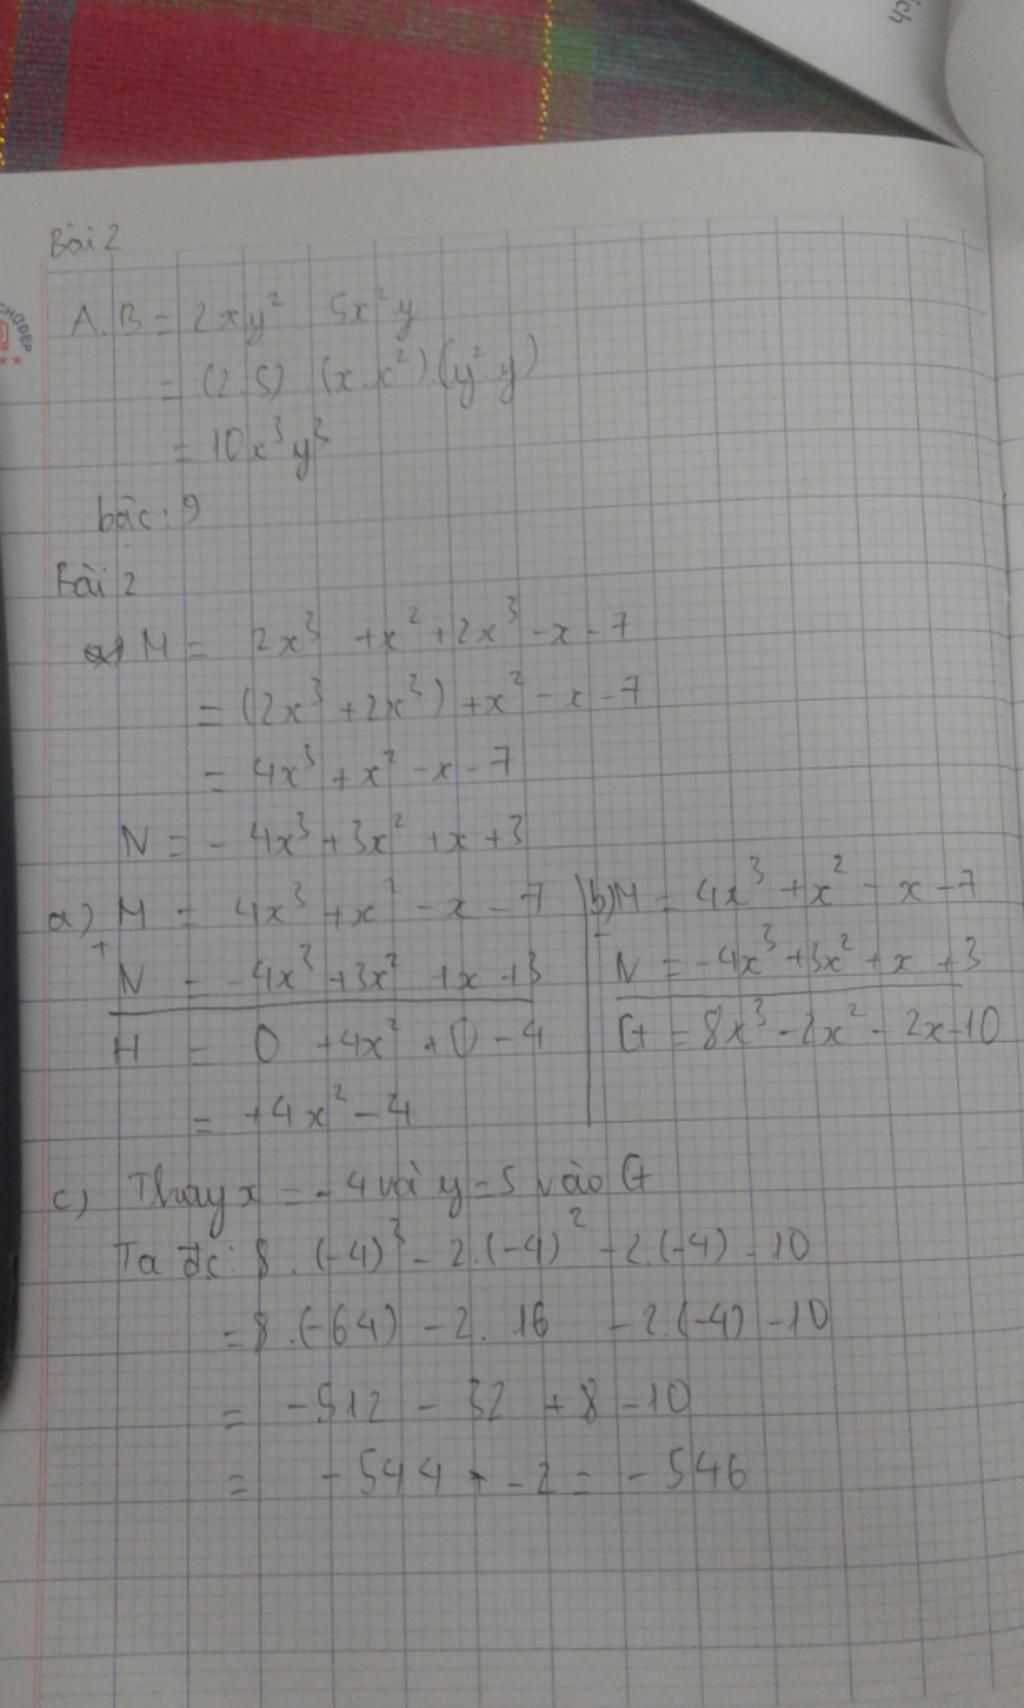 ích
CHODEP
Bài 2
A.B = 2xy² 5x²y
= (2.5) (x.x²) (y².y)
= 10x³y³
bậc: 9
Bài 2
M = 2x³ + x² + 2x³ - x - 7
= (2x³ + 2x³) + x² - x - 7
= 4x³ + x² - x - 7
N = - 4x³ + 3x² + x + 3
a) M = 4x³ + x² - x - 7
+
N = - 4x³ + 3x² + x + 3
H = 0 + 4x² + 0 - 4
= +4x² - 4
b) M = 4x³ + x² - x - 7
-
N = - 4x³ + 3x² + x + 3
G = 8x³ - 2x² - 2x - 10
c) Thay x = - 4 và y = 5 vào G
Ta đc: 8 . (-4)³ - 2.(-4)² - 2.(-4) - 10
= 8 .(-64) - 2. 16 - 2.(-4) - 10
= - 512 - 32 + 8 - 10
= - 544 + - 2 = - 546